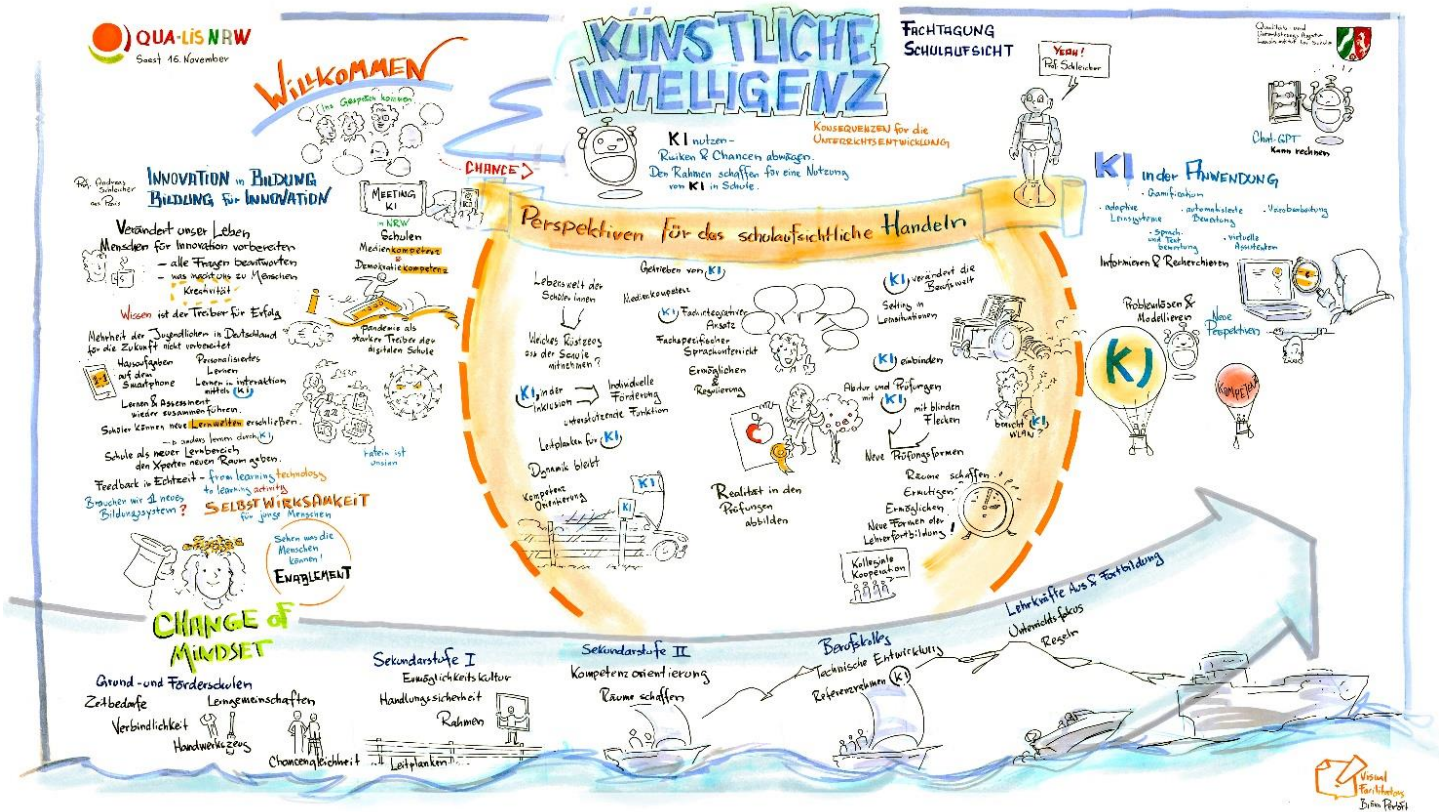 QUA-LiS NRW
Soest 16. November
WILLKOMMEN
Ins Gespräch kommen
KÜNSTLICHE
INTELLIGENZ
FACHTAGUNG
SCHULAUFSICHT
YEAH!
Prof. Schleicher
Chat-GPT
kann rechnen
KI nutzen-
Risiken & Chancen abwägen.
Den Rahmen schaffen für eine Nutzung
von KI in Schule.
KONSEQUENZEN für die
UNTERRICHTSENTWICKLUNG
CHANCE
Prof. Andreas
Schleicher
aus Paris
INNOVATION in BILDUNG
BILDUNG für INNOVATION
Verändert unser Leben
Menschen für Innovation vorbereiten
- alle Fragen beantworten
- was macht uns zu Menschen
Kreativität
Wissen ist der Treiber für Erfolg
Mehrheit der Jugendlichen in Deutschland
für die Zukunft nicht vorbereitet
Hausaufgaben
auf dem
Smartphone
Personalisiertes
Lernen
Lernen in interaktion
mittels KI
Lernen & Assessment
wieder zusammenführen.
Schüler können neue Lernwelten erschließen.
anders lernen durch KI
Schule als neuer Lernbereich
den Xperten neuen Raum geben.
Feedback in Echtzeit - from learning technology
to learning activity
Brauchen wir 1 neues
Bildungssystem?
SELBSTWIRKSAMKEIT
für junge Menschen
Sehen was die
Menschen
können!
ENABLEMENT
MEETING
KI
in NRW
Schulen
Medienkompetenz
Demokratiekompetenz
i
Pandemie als
starker Treiber der
digitalen Schule
Latein ist
unsinn
Perspektiven für das schulaufsichtliche Handeln
Lebenswelt der
Schüler innen
Welches Rüstzeug
aus der Schule
mitnehmen?
KI in der
Inklusion
Individuelle
Förderung
unterstützende Funktion
Leitplanken für KI
Dynamik bleibt
Kompetenz
Orientierung
KI
KI
Getrieben von KI
Medienkompetenz
KI Fachintegrativer
Ansatz
Fachspezifischer
Sprachunterricht
Ermöglichen
&
Regulierung
Realität in den
Prüfungen
abbilden
KI verändert die
Berufswelt
Setting in
Lernsituationen
KI einbinden
Abitur und Prüfungen
mit KI
mit blinden
Flecken
Neue Prüfungsformen
braucht KI
WLAN?
Räume schaffen
Ermutigen
Ermöglichen
Neue Formen der
Lehrerfortbildung!
Kollegiale
Kooperation
KI in der ANWENDUNG
- Gamification
- adaptive
Lernsysteme
- automatisierte
Bewertung
- Sprach
und Text
bewertung
- virtuelle
Assistenten
Informieren & Recherchieren
Problemlösen &
Modellieren
Neue
Perspektiven
KI
KOMPETENZ
CHANGE of
MINDSET
Grund- und Förderschulen
Zeitbedarfe
Lerngemeinschaften
Verbindlichkeit
Handwerkszeug
Chancengleichheit
Sekundarstufe I
Ermöglichkeitskultur
Handlungssicherheit
Rahmen
Leitplanken
Sekundarstufe II
Kompetenzorientierung
Räume schaffen
Berufskolleg
Technische Entwicklung
Referenzrahmen KI
Lehrkräfte Aus & Fortbildung
Unterrichtsfokus
Regeln
Visual
Facilitators